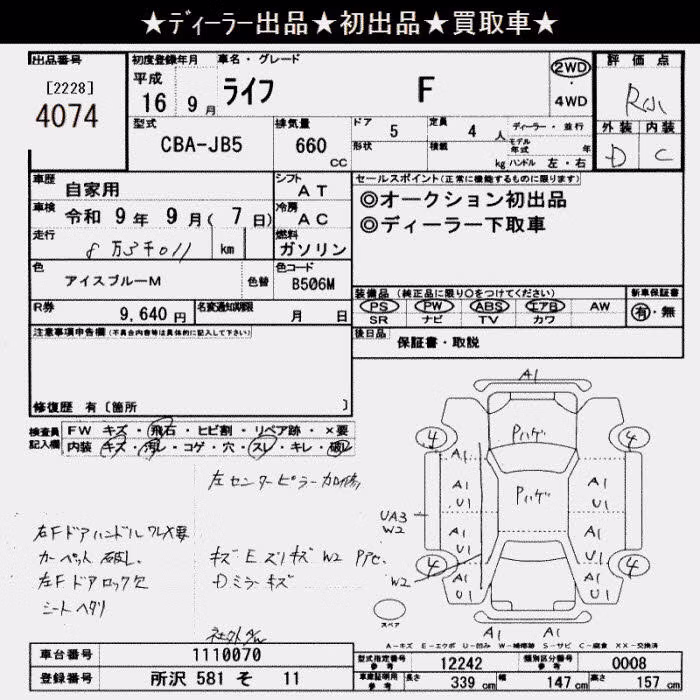 ★ディーラー出品★初出品★買取車★
出品番号
[2228]
4074
初度登録年月
平成
16 9月
車名・グレード
ライフ F
2WD
・
4WD
評価点
外装 内装
D C
型式
CBA-JB5
排気量
660
CC
ドア 5
定員 4 人
ディーラー・並行
形状
積載 kg
モデル年式 年
ハンドル 左・右
車歴 自家用
シフト AT
車検 令和 9年 9月(7日)
冷房 AC
走行
km
燃料 ガソリン
色 アイスブルーM
色替
色コード B506M
R券 9,640円
名変通知期限 月 日
セールスポイント(正常に機能するものに限ります)
◎オークション初出品
◎ディーラー下取車
装備品(純正品に限り○をつけてください)
PS PW ABS エアB AW
SR ナビ TV カワ
新車保証書
有・無
後日品 保証書・取説
注意事項申告欄(不具合内容等は具体的に記入して下さい)
修復歴 有〔箇所 〕
検査員記入欄
FW キズ・飛石・ヒビ割・リペア跡・×要
内装 キズ・汚レ・コゲ・穴・スレ・キレ・破レ
左センターピラー加修
右FドアハンドルワレX要
カーペット破レ
左Fドアロック欠
シートヘタリ
キズ E ズリキズ W2
Dミラーキズ
A1
4
4
Pハゲ
A1
U1
A1
U1
Pハゲ
UA3
W2
A1
U1
A1
U1
4
4
A1
U1
A1
U1
W2
スペア
A1 A1
A-キズ E-エクボ U-凹み W-補修跡 S-サビ C-腐食 XX-交換済
車台番号 1110070
登録番号 所沢 581 そ 11
型式指定番号 参考 12242
類別区分番号 参考 0008
車庫証明用 参考 長さ 339 cm 幅 147 cm 高さ 157 cm